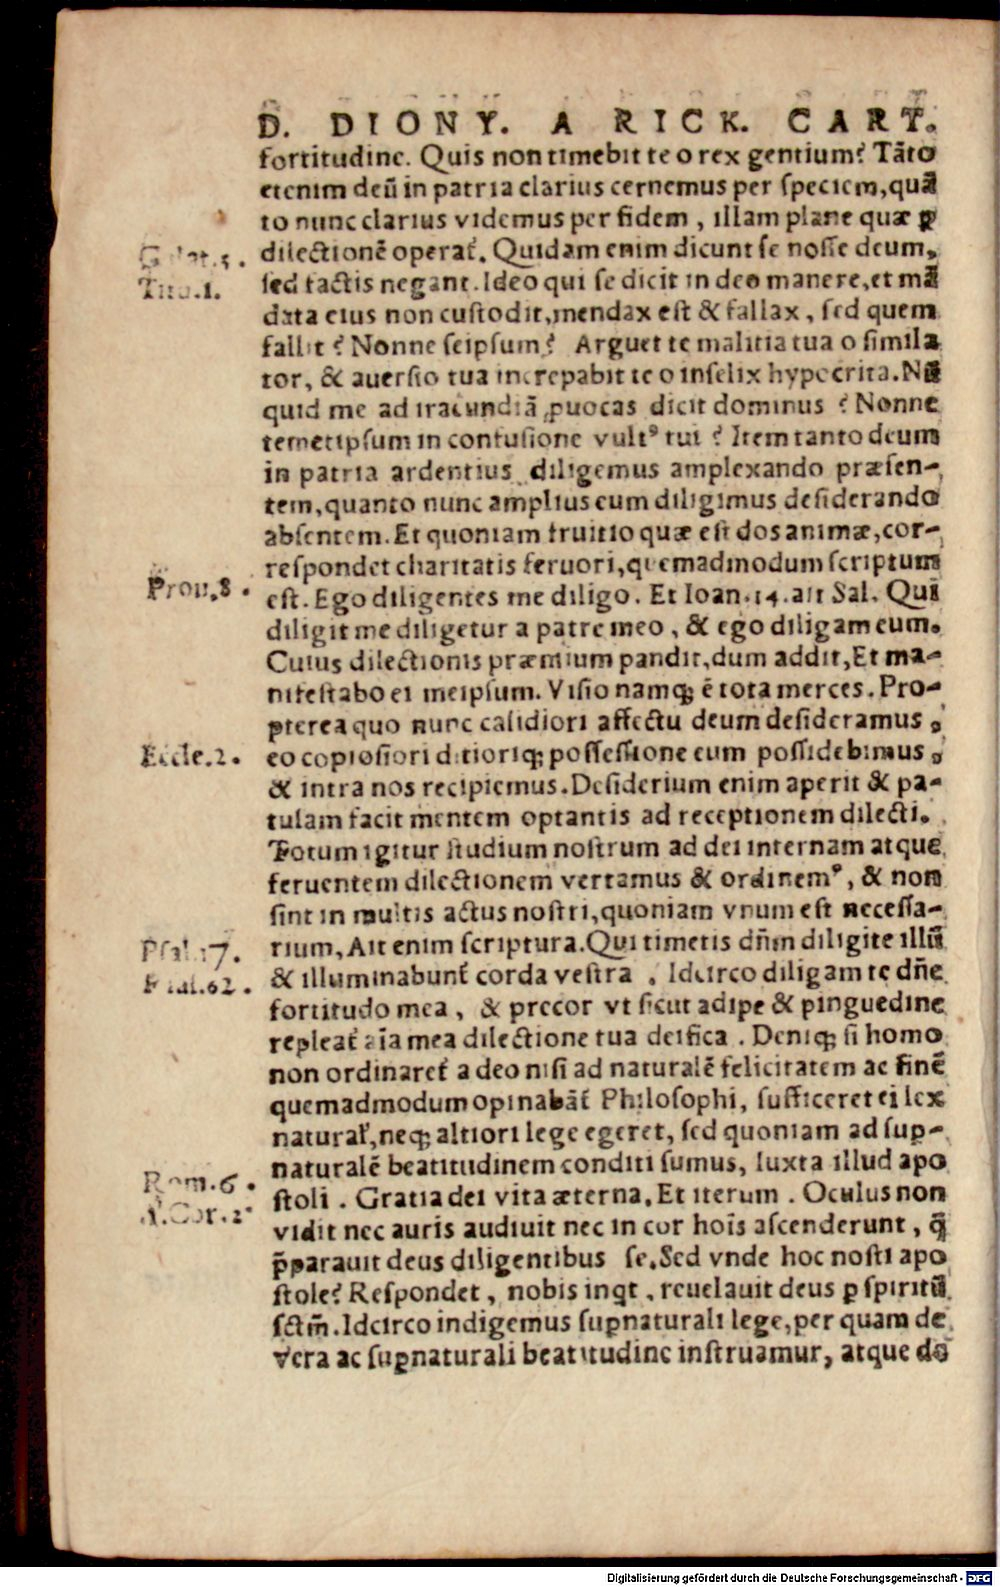 D. DIONY. A RICK. CART.
fortitudine. Quis non timebit te o rex gentium? Tãto
etenim deũ in patria clarius cernemus per speciem, quã
to nunc clarius videmus per fidem, illam plane quæ ꝑ
Galat.5.
dilectionẽ operat᷑. Quidam enim dicunt se nosse deum,
Titu.1.
sed factis negant. Ideo qui se dicit in deo manere, et mã
data eius non custodit, mendax est & fallax, sed quem
fallit? Nonne seipsum? Arguet te malitia tua o simila
tor, & aversio tua increpabit te o infelix hypocrita. Nũ
quid me ad iracundiã ꝓuocas dicit dominus? Nonne
temetipsum in confusione vultꝰ tui? Item tanto deum
in patria ardentius diligemus amplexando præsen-
tem, quanto nunc amplius eum diligimus desiderando
absentem. Et quoniam fruitio quæ est dos animæ, cor-
respondet charitatis feruori, quemadmodum scriptum
Prou.8.
est. Ego diligentes me diligo. Et Ioan.14. ait Sal. Qui
diligit me diligetur a patre meo, & ego diligam eum.
Cuius dilectionis præmium pandit, dum addit, Et ma-
nifestabo ei meipsum. Visio namq; ẽ tota merces. Pro-
pterea quo nunc calidiori affectu deum desideramus,
Eccle.2.
eo copiosiori ditioriq; possessione eum possidebimus,
& intra nos recipiemus. Desiderium enim aperit & pa-
tulam facit mentem optantis ad receptionem dilecti.
Totum igitur studium nostrum ad dei internam atque
feruentem dilectionem vertamus & ordinemꝰ, & non
sint in multis actus nostri, quoniam vnum est necessa-
Psal.17.
rium, Ait enim scriptura. Qui timetis dñm diligite illũ
Psal.62.
& illuminabunt᷑ corda vestra. Idcirco diligam te dñe
fortitudo mea, & precor vt sicut adipe & pinguedine
repleat᷑ aĩa mea dilectione tua deifica. Deniq; si homo
non ordinaret᷑ a deo nisi ad naturalẽ felicitatem ac finẽ
quemadmodum opinabãt᷑ Philosophi, sufficeret ei lex
natural᷑, neq; altiori lege egeret, sed quoniam ad sup-
naturalẽ beatitudinem conditi sumus, Iuxta illud apo
Rom.6.
stoli. Gratia dei vita æterna. Et iterum. Oculus non
1.Cor.2.
vidit nec auris audiuit nec in cor hoĩs ascenderunt, q̃
p̃parauit deus diligentibus se. Sed vnde hoc nosti apo
stole? Respondet, nobis inqt, reuelauit deus ꝑ spiritũ
sctm̃. Idcirco indigemus suꝑnaturali lege, per quam de
vera ac suꝑnaturali beatitudine instruamur, atque do
Digitalisierung gefördert durch die Deutsche Forschungsgemeinschaft - DFG